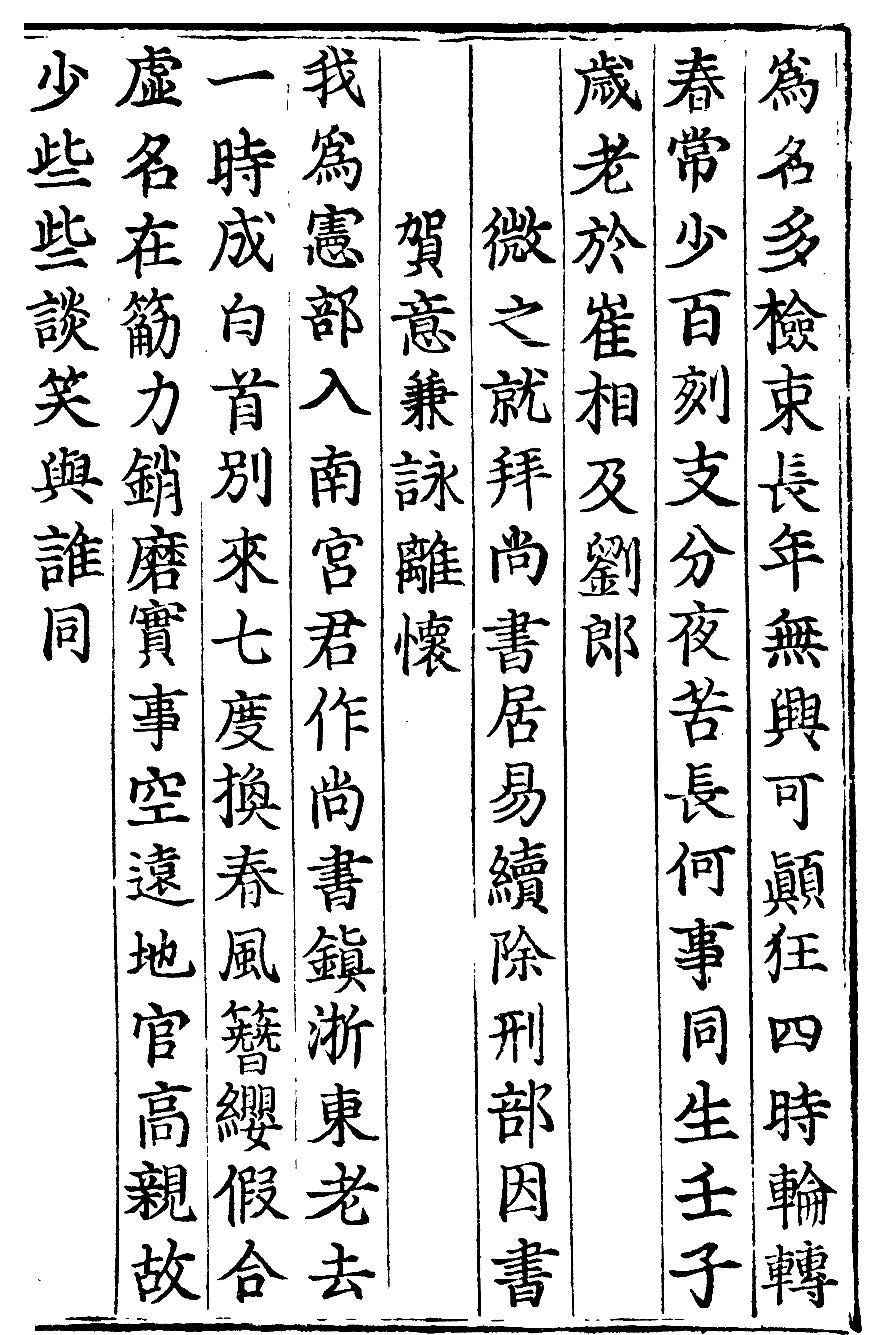 為名多檢束長年無興可顛狂四時輪轉
春常少百刻支分夜苦長何事同生壬子
歲老於崔相及劉郎
微之就拜尚書居易續除刑部因書
賀意兼詠離懷
我為憲部入南宮君作尚書鎮浙東老去
一時成白首別來七度換春風簪纓假合
虛名在筋力銷磨實事空遠地官高親故
少些些談笑與誰同